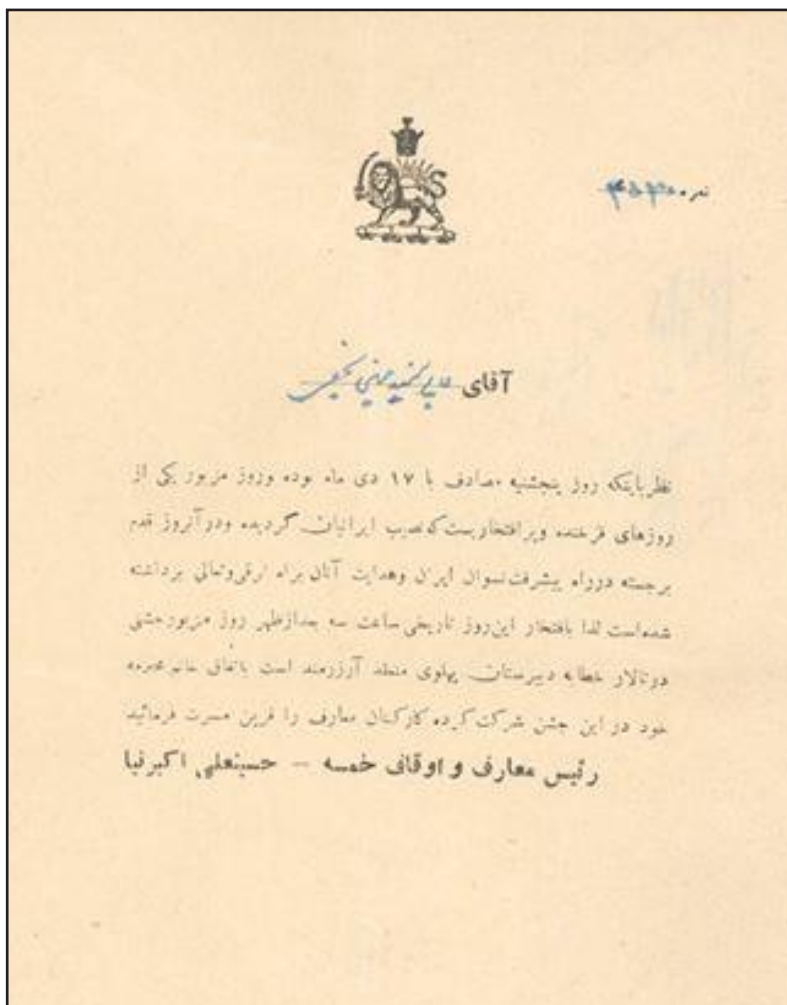 نمره
آقای
نظرباینکه روز پنجشنبه مصادف با ۱۷ دی ماه بوده وروز مزبور یکی از
روزهای فرخنده وپرافتخاریست که نصیب ایرانیان گردیده ودرآنروز قدم
برجسته درراه پیشرفت نسوان ایران وهدایت آنان براه ترقی وتعالی برداشته
شده است لذا بافتخار این روز تاریخی ساعت سه بعدازظهر روز مزبورجشنی
درتالار خطابه دبیرستان پهلوی منعقد آرزومند است باتفاق خانم محترمه
خود در این جشن شرکت کرده کارکنان معارف را قرین مسرت فرمائید
رئیس معارف و اوقاف خمسه – حسینعلی اکبرنیا